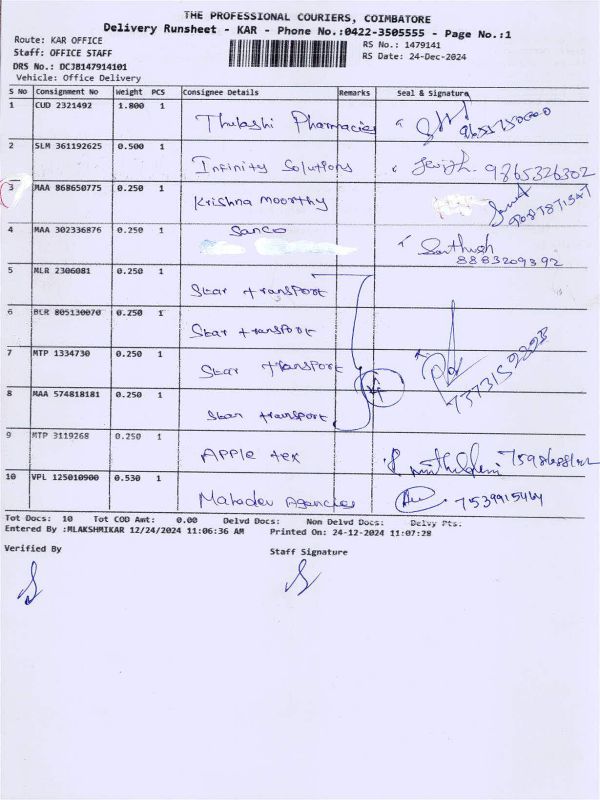 THE PROFESSIONAL COURIERS, COIMBATORE
Delivery Runsheet - KAR - Phone No.:0422-3505555 - Page No.:1
Route: KAR OFFICE
RS No.: 1479141
Staff: OFFICE STAFF
RS Date: 24-Dec-2024
DRS No.: DCJB147914101
Vehicle: Office Delivery
S No Consignment No Weight PCS Consignee Details Remarks Seal & Signature
1 CUD 2321492 1.800 1 Thulashi Pharmacies
2 SLM 361192625 0.500 1 Infinity Solutions 9865326302
3 MAA 868650775 0.250 1 Krishna moorthy
4 MAA 302336876 0.250 1 Sanco Santhush
8883209392
5 MLR 2306081 0.250 1 Star transport
6 BCR 805130070 0.250 1 Star transport
7 MTP 1334730 0.250 1 Star transport
8 MAA 574818181 0.250 1 Star transport
9 MTP 3119268 0.250 1 APPle tex
10 VPL 125010900 0.530 1 Mahadev Agencies
Tot Docs: 10 Tot COD Amt: 0.00 Delvd Docs: Non Delvd Docs: Delvy Pts:
Entered By :MLAKSHMIKAR 12/24/2024 11:06:36 AM Printed On: 24-12-2024 11:07:28
Verified By Staff Signature